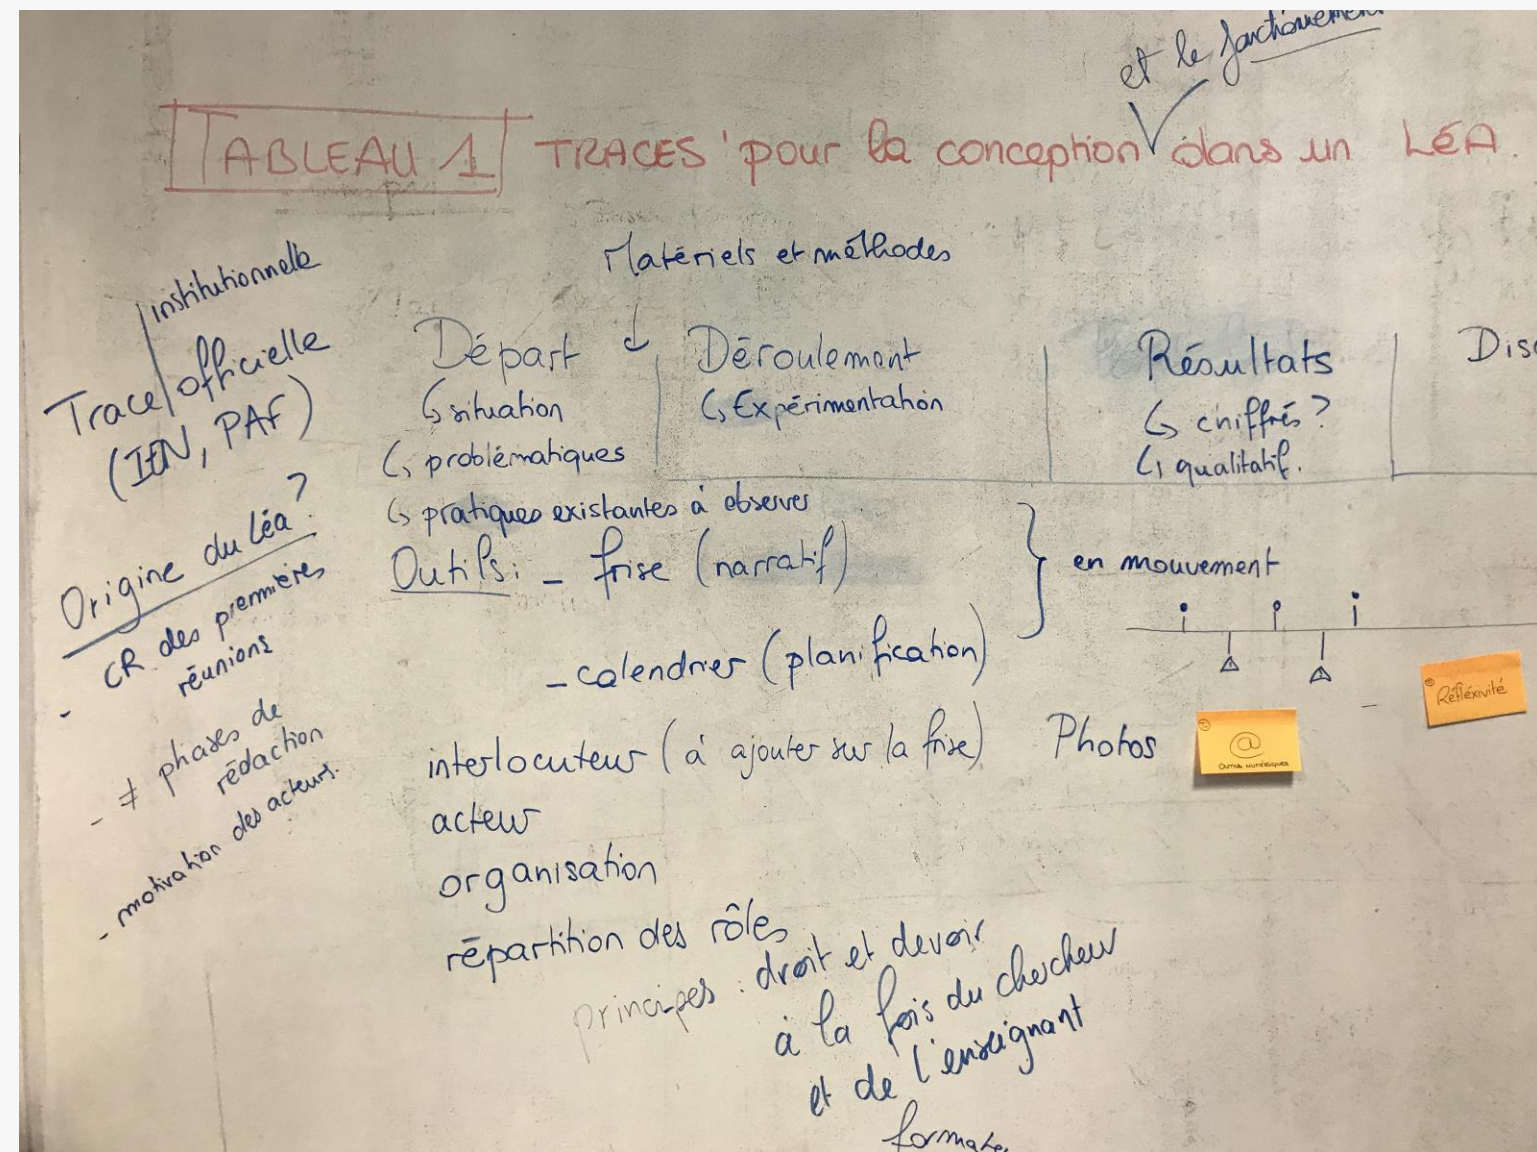 et le fonctionnement
TABLEAU 1 TRACES pour la conception dans un LéA.
Matériels et méthodes
institutionnelle
Trace officielle
(IEN, PAF)
Origine du Léa?
CR des premières
réunions
-
- ≠ phases de
rédaction
- motivation des acteurs.
Départ
↳ situation
↳ problématiques
↳ pratiques existantes à observer
Déroulement
↳ Expérimentation
Résultats
↳ chiffrés?
↳ qualitatif.
Disc
Outils: - frise (narratif)
- calendrier (planification)
en mouvement
interlocuteur (à ajouter sur la frise)
Photos
@
Outils numériques
Réfléxivité
acteur
organisation
répartition des rôles
principes: droit et devoir
à la fois du chercheur
et de l'enseignant
formate